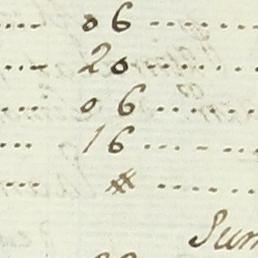 06
20
06
16
#
Sum